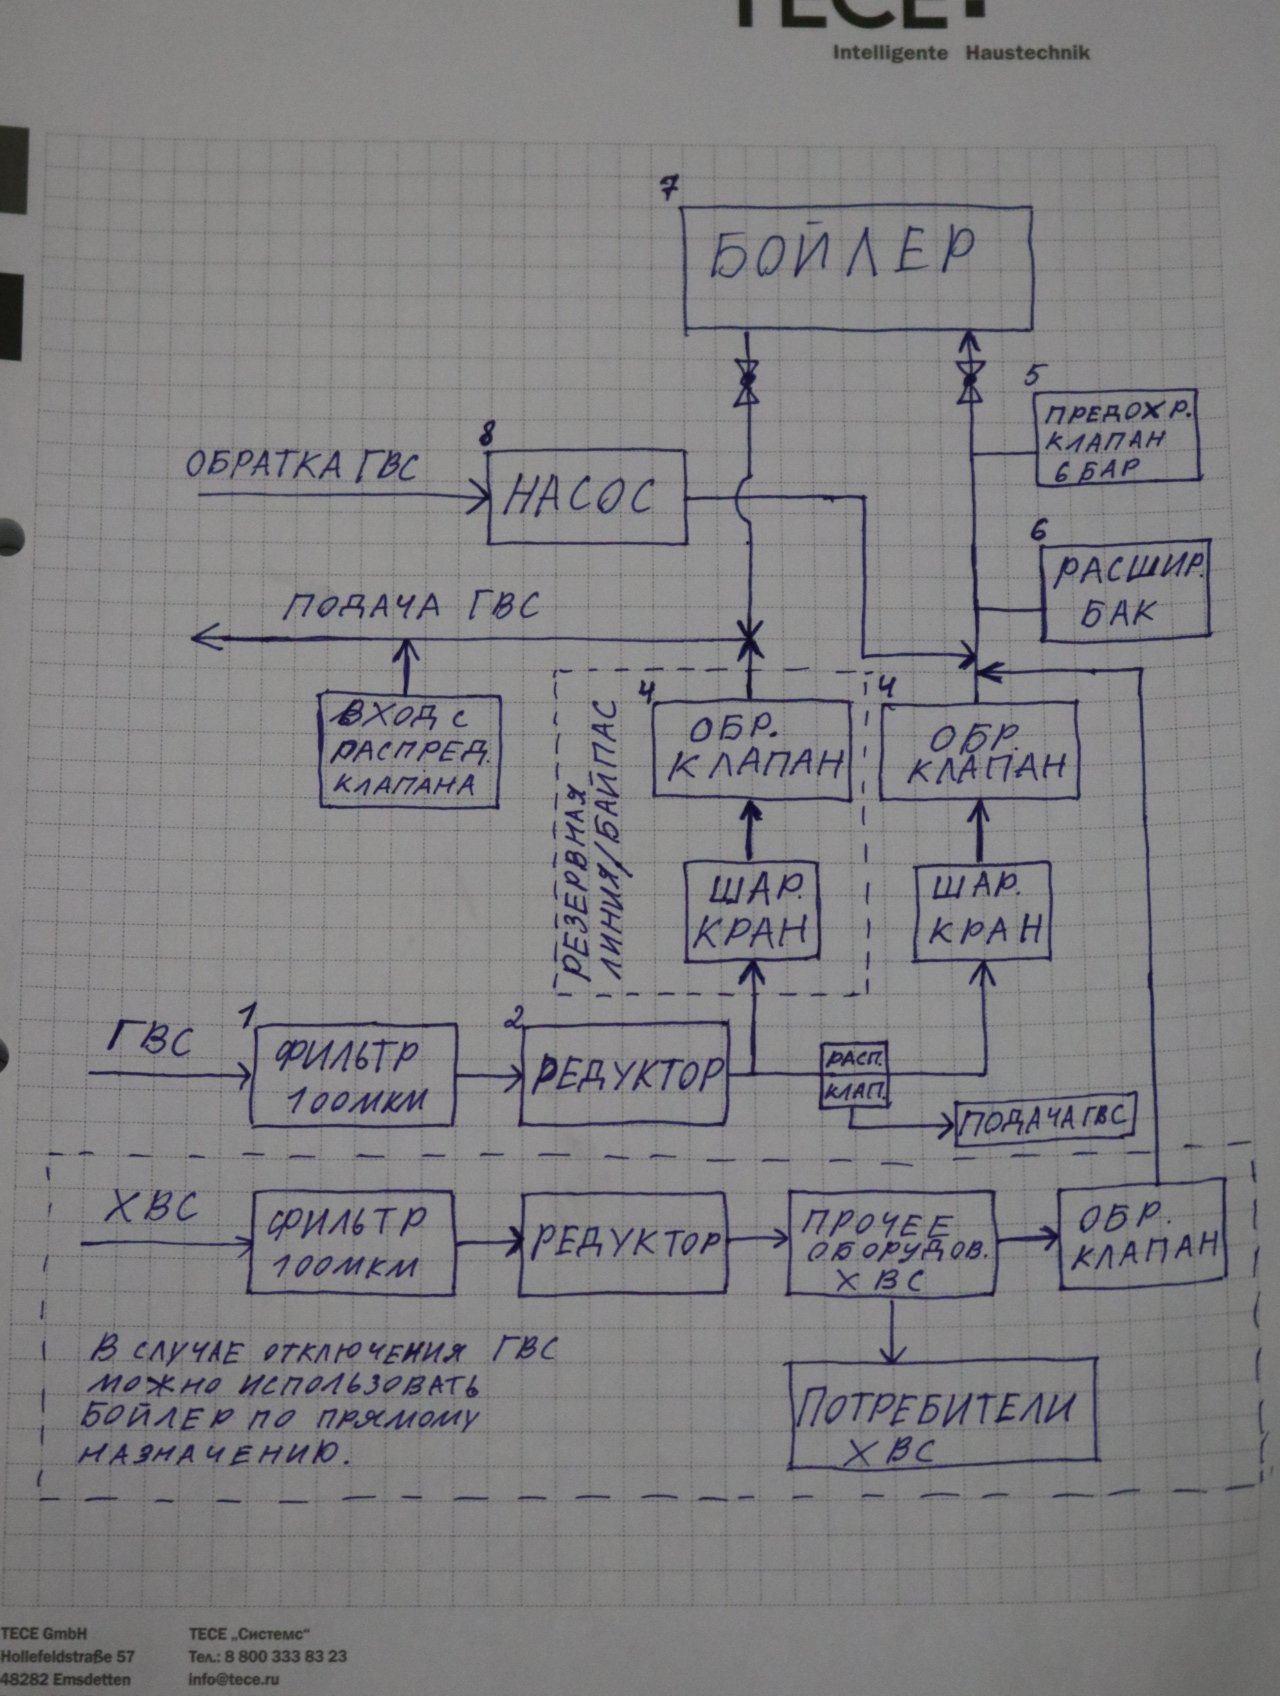 TECE
Intelligente Haustechnik
7
БОЙЛЕР
5
ПРЕДОХР.
КЛАПАН
6 БАР
8
ОБРАТКА ГВС
НАСОС
6
РАСШИР.
БАК
ПОДАЧА ГВС
ВХОД С
РАСПРЕД.
КЛАПАНА
РЕЗЕРВНАЯ
ЛИНИЯ/БАЙПАС
4
ОБР.
КЛАПАН
4
ОБР.
КЛАПАН
ШАР.
КРАН
ШАР.
КРАН
ГВС
1
ФИЛЬТР
100МКМ
2
РЕДУКТОР
РАСП.
КЛАП.
ПОДАЧА ГВС
ХВС
ФИЛЬТР
100МКМ
РЕДУКТОР
ПРОЧЕЕ
ОБОРУДОВ.
ХВС
ОБР.
КЛАПАН
В СЛУЧАЕ ОТКЛЮЧЕНИЯ ГВС
МОЖНО ИСПОЛЬЗОВАТЬ
БОЙЛЕР ПО ПРЯМОМУ
НАЗНАЧЕНИЮ.
ПОТРЕБИТЕЛИ
ХВС
TECE GmbH
Hollefeldstraße 57
48282 Emsdetten
TECE „Системс“
Тел.: 8 800 333 83 23
info@tece.ru